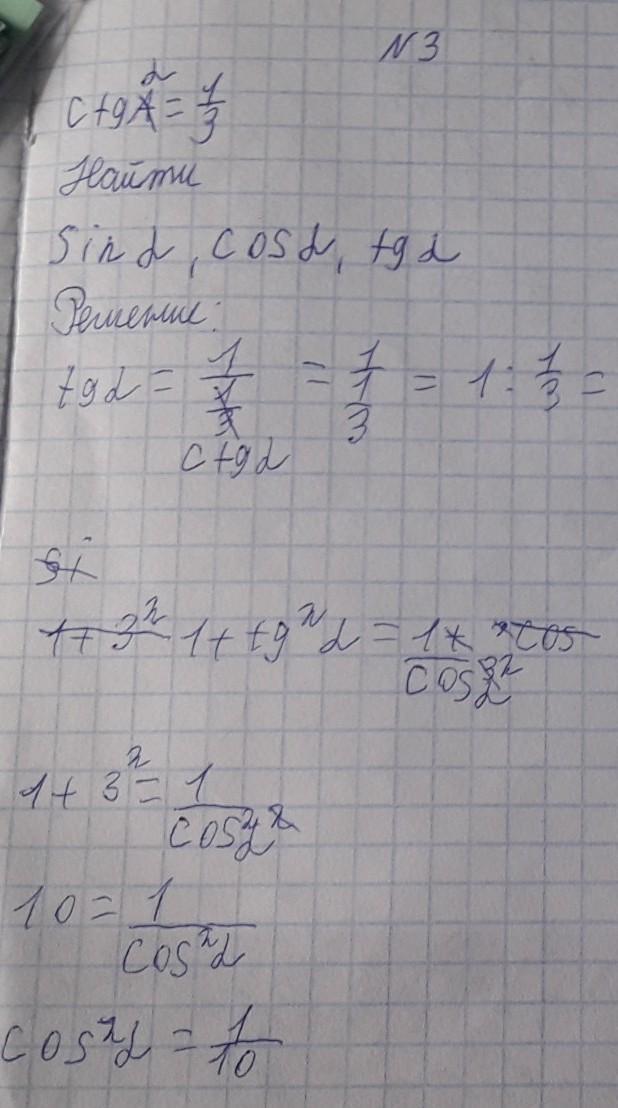 N3
ctgα = 1/3
Найти
Sin α, cos α, tg α
Решение:
tg α = 1/ctg α = 1/(1/3) = 1 : 1/3 =
1 + tg²α = 1/cos²α
1 + 3² = 1/cos²α
10 = 1/cos²α
cos²α = 1/10